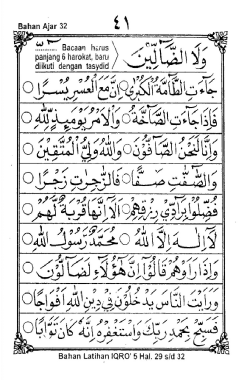 Bahan Ajar 32
٤١
Bacaan harus
panjang 6 harokat, baru
diikuti dengan tasydid
وَلَا الضَّآلِّيْنَ
جَآءَتِ الطَّآمَّةُ الْكُبْرٰى ○ اِنَّ مَعَ الْعُسْرِ يُسْرًا ○
فَاِذَا جَآءَتِ الصَّآخَّةُ ○ وَالْاَمْرُ يَوْمَئِذٍ لِلّٰهِ
وَاِنَّا لَنَحْنُ الصَّآفُّوْنَ ○ وَاللهُ وَلِيُّ الْمُتَّقِيْنَ ○
وَالصّٰٓفّٰتِ صَفًّا ○ فَالزّٰجِرٰتِ زَجْرًا ○
فُضِّلُوْا بِرَآدِّيْ رِزْقِهِمْ ○ اَلَآ اِنَّهَا قُرْبَةٌ لَّهُمْ ○
لَآ اِلٰهَ اِلَّا اللهُ ○ مُحَمَّدٌ رَّسُوْلُ اللهِ ○
وَاِذَا رَاَوْهُمْ قَالُوْٓا اِنَّ هٰٓؤُلَآءِ لَضَآلُّوْنَ ○
وَرَاَيْتَ النَّاسَ يَدْخُلُوْنَ فِيْ دِيْنِ اللهِ اَفْوَاجًا ○
فَسَبِّحْ بِحَمْدِ رَبِّكَ وَاسْتَغْفِرْهُ اِنَّهٗ كَانَ تَوَّابًا ○
Bahan Latihan IQRO' 5 Hal. 29 s/d 32